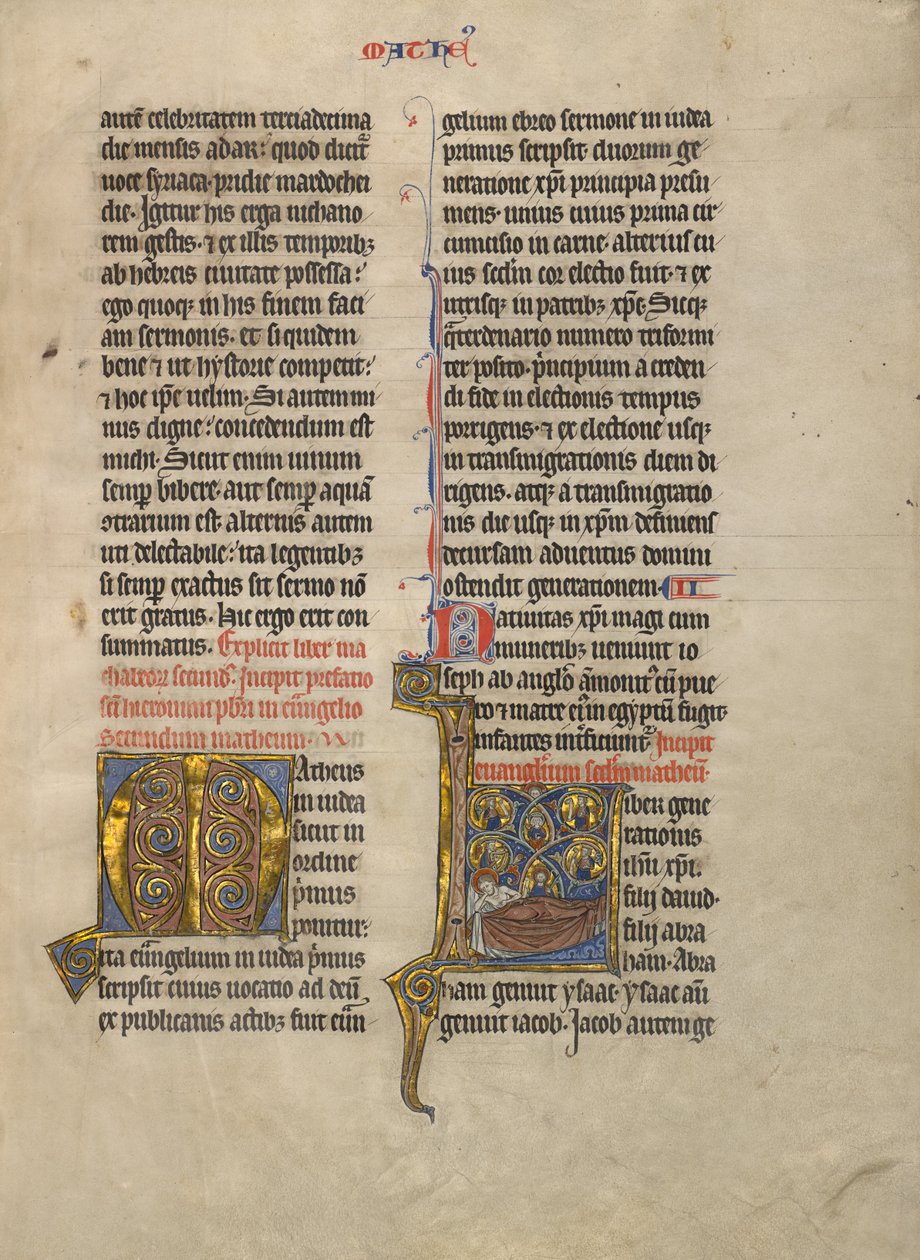 MATHEꝰ
autē celebritatem terciadecima
die mensis adar: quod dicit᷑
uoce syriaca· pridie mardochei
die· Igitur his erga nichano
rem gestis· ⁊ ex illis temporibꝫ
ab hebreis ciuitate possessa:
ego quoqꝫ in his finem faci
am sermonis· et si quidem
bene ⁊ ut hystorie competit:
⁊ hoc ip̄e uelim· Si autem mi
nus digne: concedendum est
michi· Sicut enim uinum
semꝑ bibere· aut semꝑ aquā
ɔtrarium est· alternis autem
uti delectabile: ita legentibꝫ
si semꝑ exactus sit sermo nō
erit gratus· Hic ergo erit con
summatus· Explicit liber ma
chabeoꝝ secundꝰ· Incipit prefatio
sc̄i hieronimi pb̄ri in euuāgelio
Secundum matheum·
Matheus
in iudea
sicut in
ordine
p̄mus
ponitur:
ita euuāgelium in iudea p̄mus
scripsit cuius uocatio ad deū
ex publicanis actibꝫ fuit euuā
gelium ebreo sermone in iudea
primus scripsit· duorum ge
neratione xp̄i principia presu
mens· unius cuius prima cir
cumcisio in carne· alterius cu
ius scd̄m cor electio fuit· ⁊ ex
utrisqꝫ in patribꝫ xp̄c· Sicqꝫ
q̄terdenario numero triformi
ter posito· p̄ncipium a creden
di fide in electionis tempus
porrigens· ⁊ ex electione usqꝫ
in transmigrationis diem di
rigens· atqꝫ a transmigratio
nis die usqꝫ in xp̄m definiens
decursam aduentus domini
ostendit generationem· II
Natiuitas xp̄i magi cum
muneribꝫ ueniunt io
seph ab angl̄o āmonit᷑ cū pue
ro ⁊ matre eiꝰ in egyptū fugit·
infantes int̄ficiunt᷑· Incipit
euangl̄ium scd̄m matheū·
Liber gene
rationis
ih̄u xp̄i.
filij dauid·
filij abra
ham· Abra
ham genuit ysaac· ysaac aū
genuit iacob· Jacob autem ge